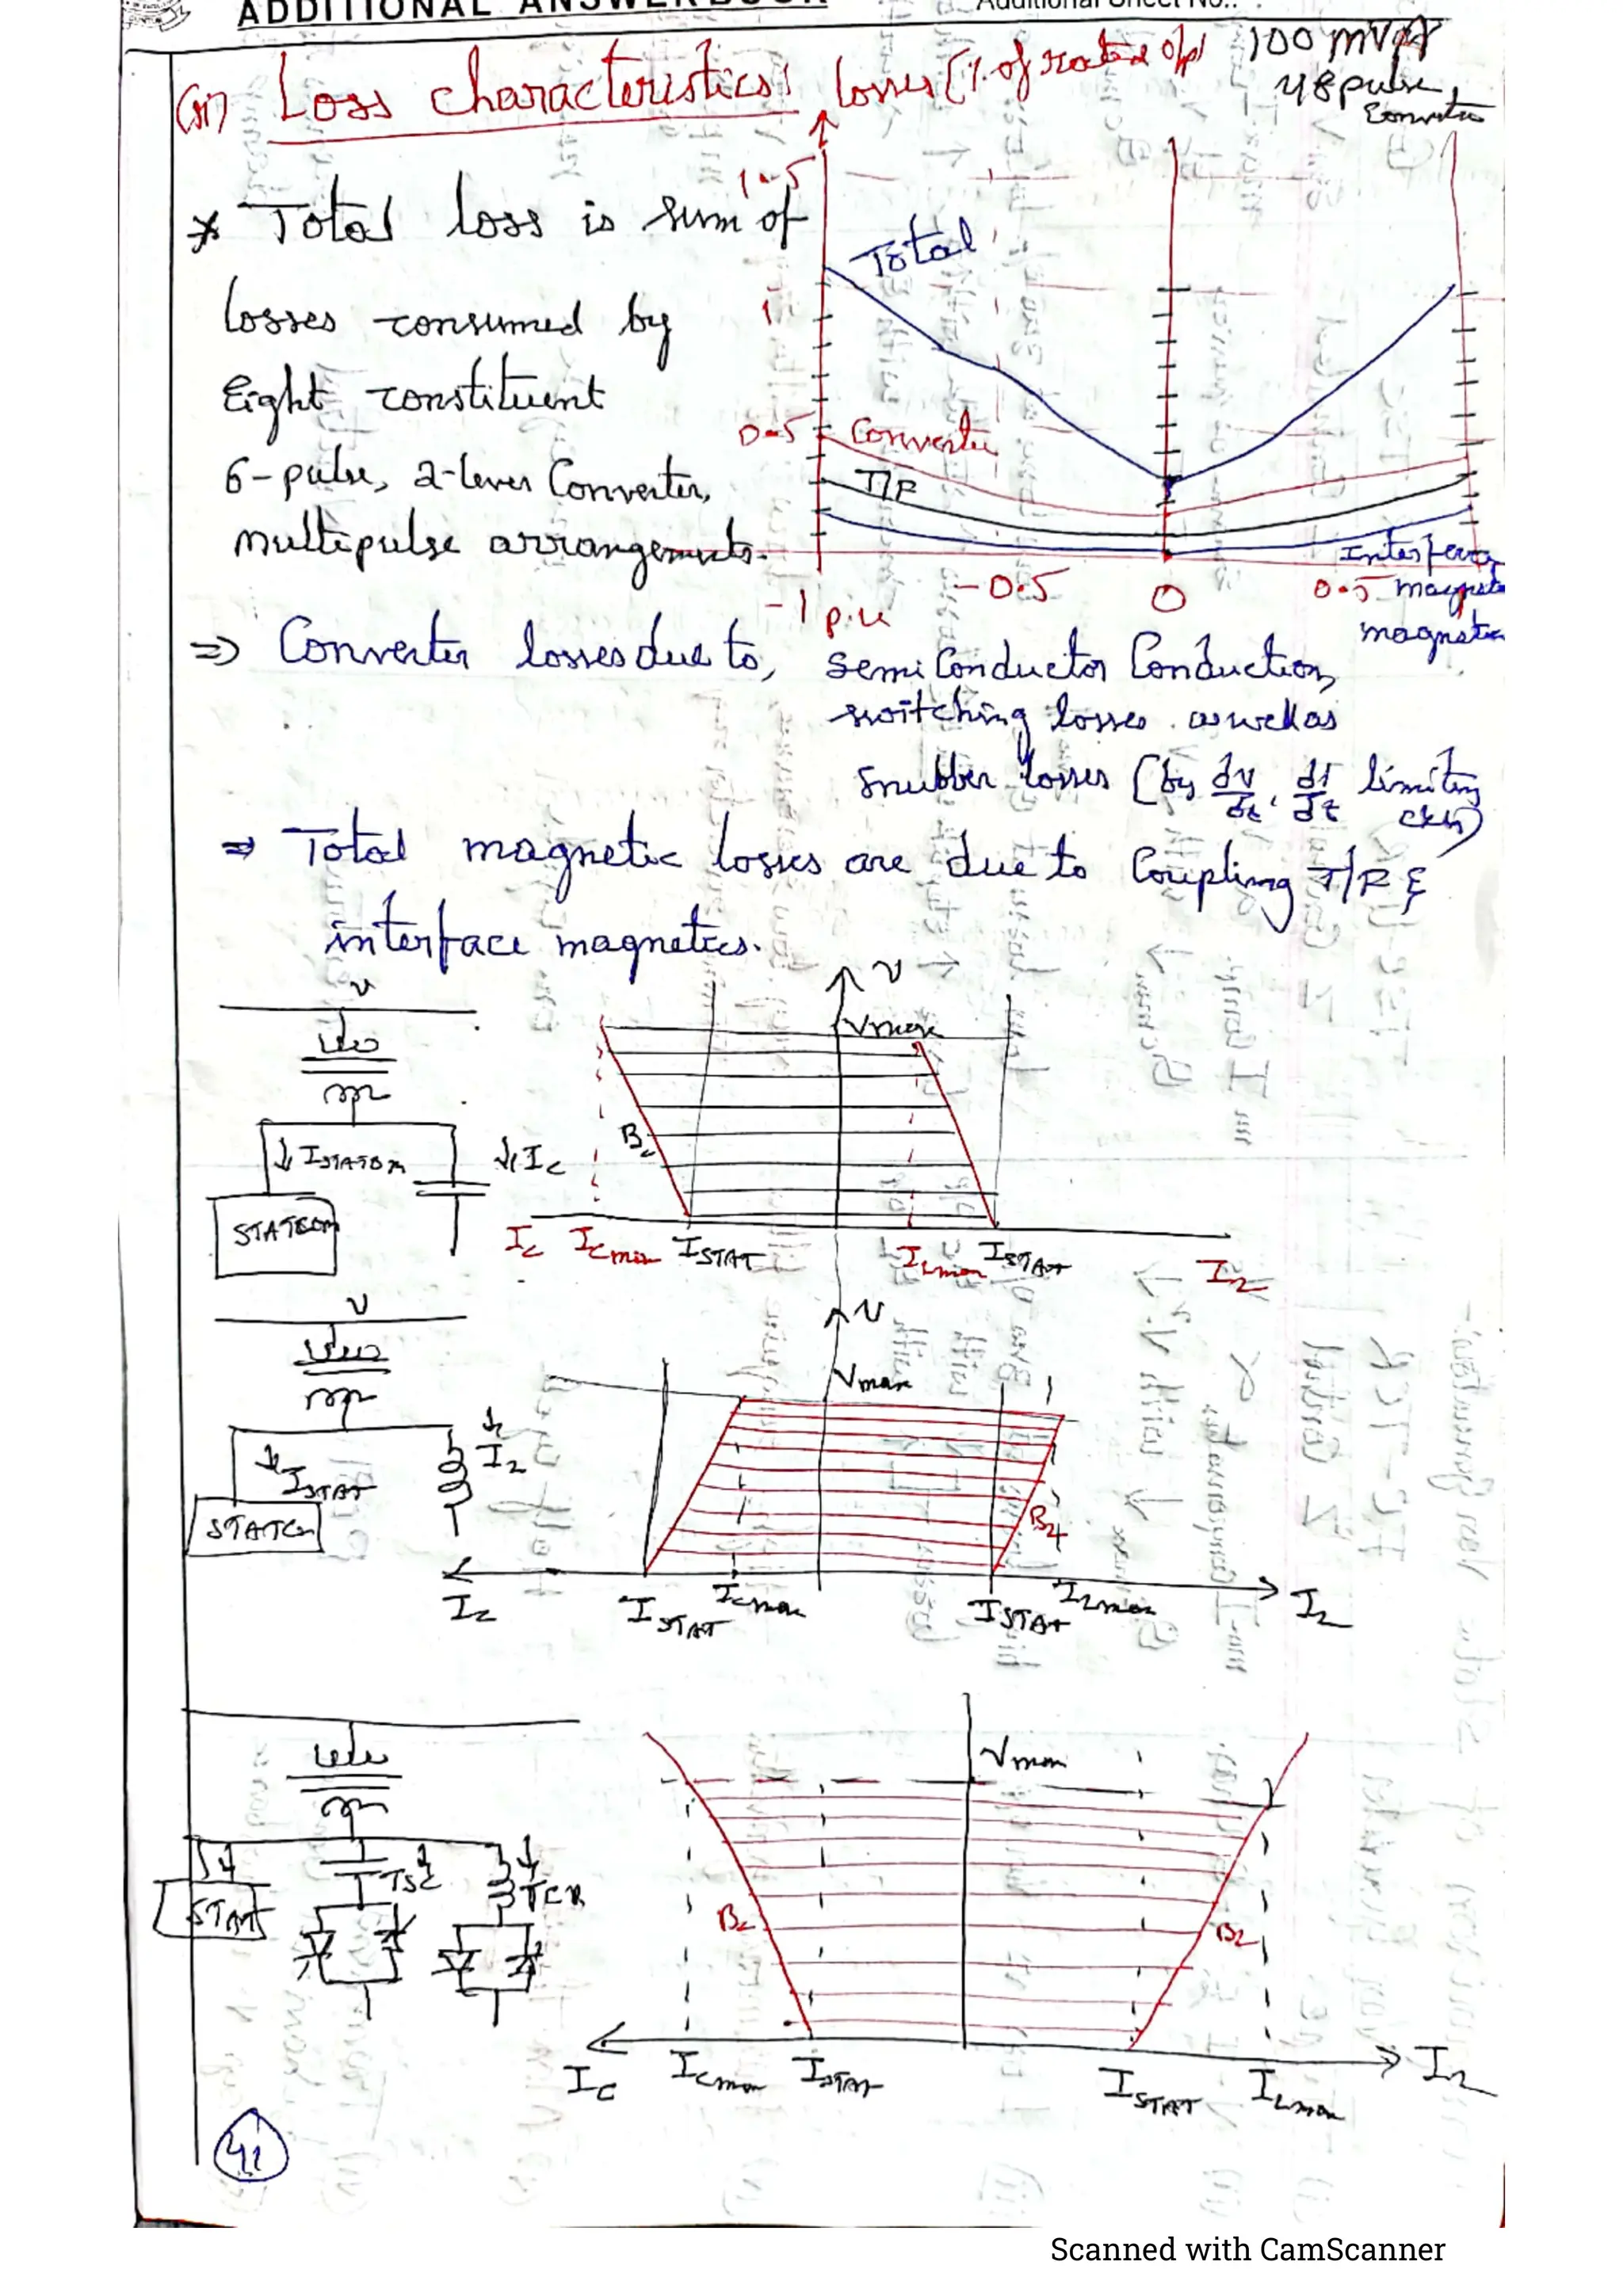 ADDITIONAL ANSWER BOOK
Additional Sheet No.:
(iii) Loss characteristics: losses (% of rated o/p)
100 MVAR
48 pulse
Converter
1.5
Total
* Total loss is sum of
losses consumed by
Eight constituent
6-pulse, 2-level Converter,
multipulse arrangements.
1
0.5
Converter
T/R
Interface
magnetic
magnetic
-1 p.u
-0.5
0
0.5
1
⇒ Converter losses due to, semiconductor Conduction,
switching losses as well as
snubber losses (by dv/dt, di/dt limiting
ckts)
⇒ Total magnetic losses are due to Coupling T/R &
interface magnetics.
V
V
Vmax
↓ISTATCOM
↓IC
BC
STATCOM
IC
ICmax
ISTAT
ILmax
ISTAT
IL
V
V
Vmax
↓ISTAT
↓IL
BL
STATCOM
IC
ISTAT
ICmax
ISTAT
ILmax
IL
Vmax
TSC
TCR
STAT
BC
BL
IC
ICmax
ISTAT
ISTAT
ILmax
IL
41
Scanned with CamScanner